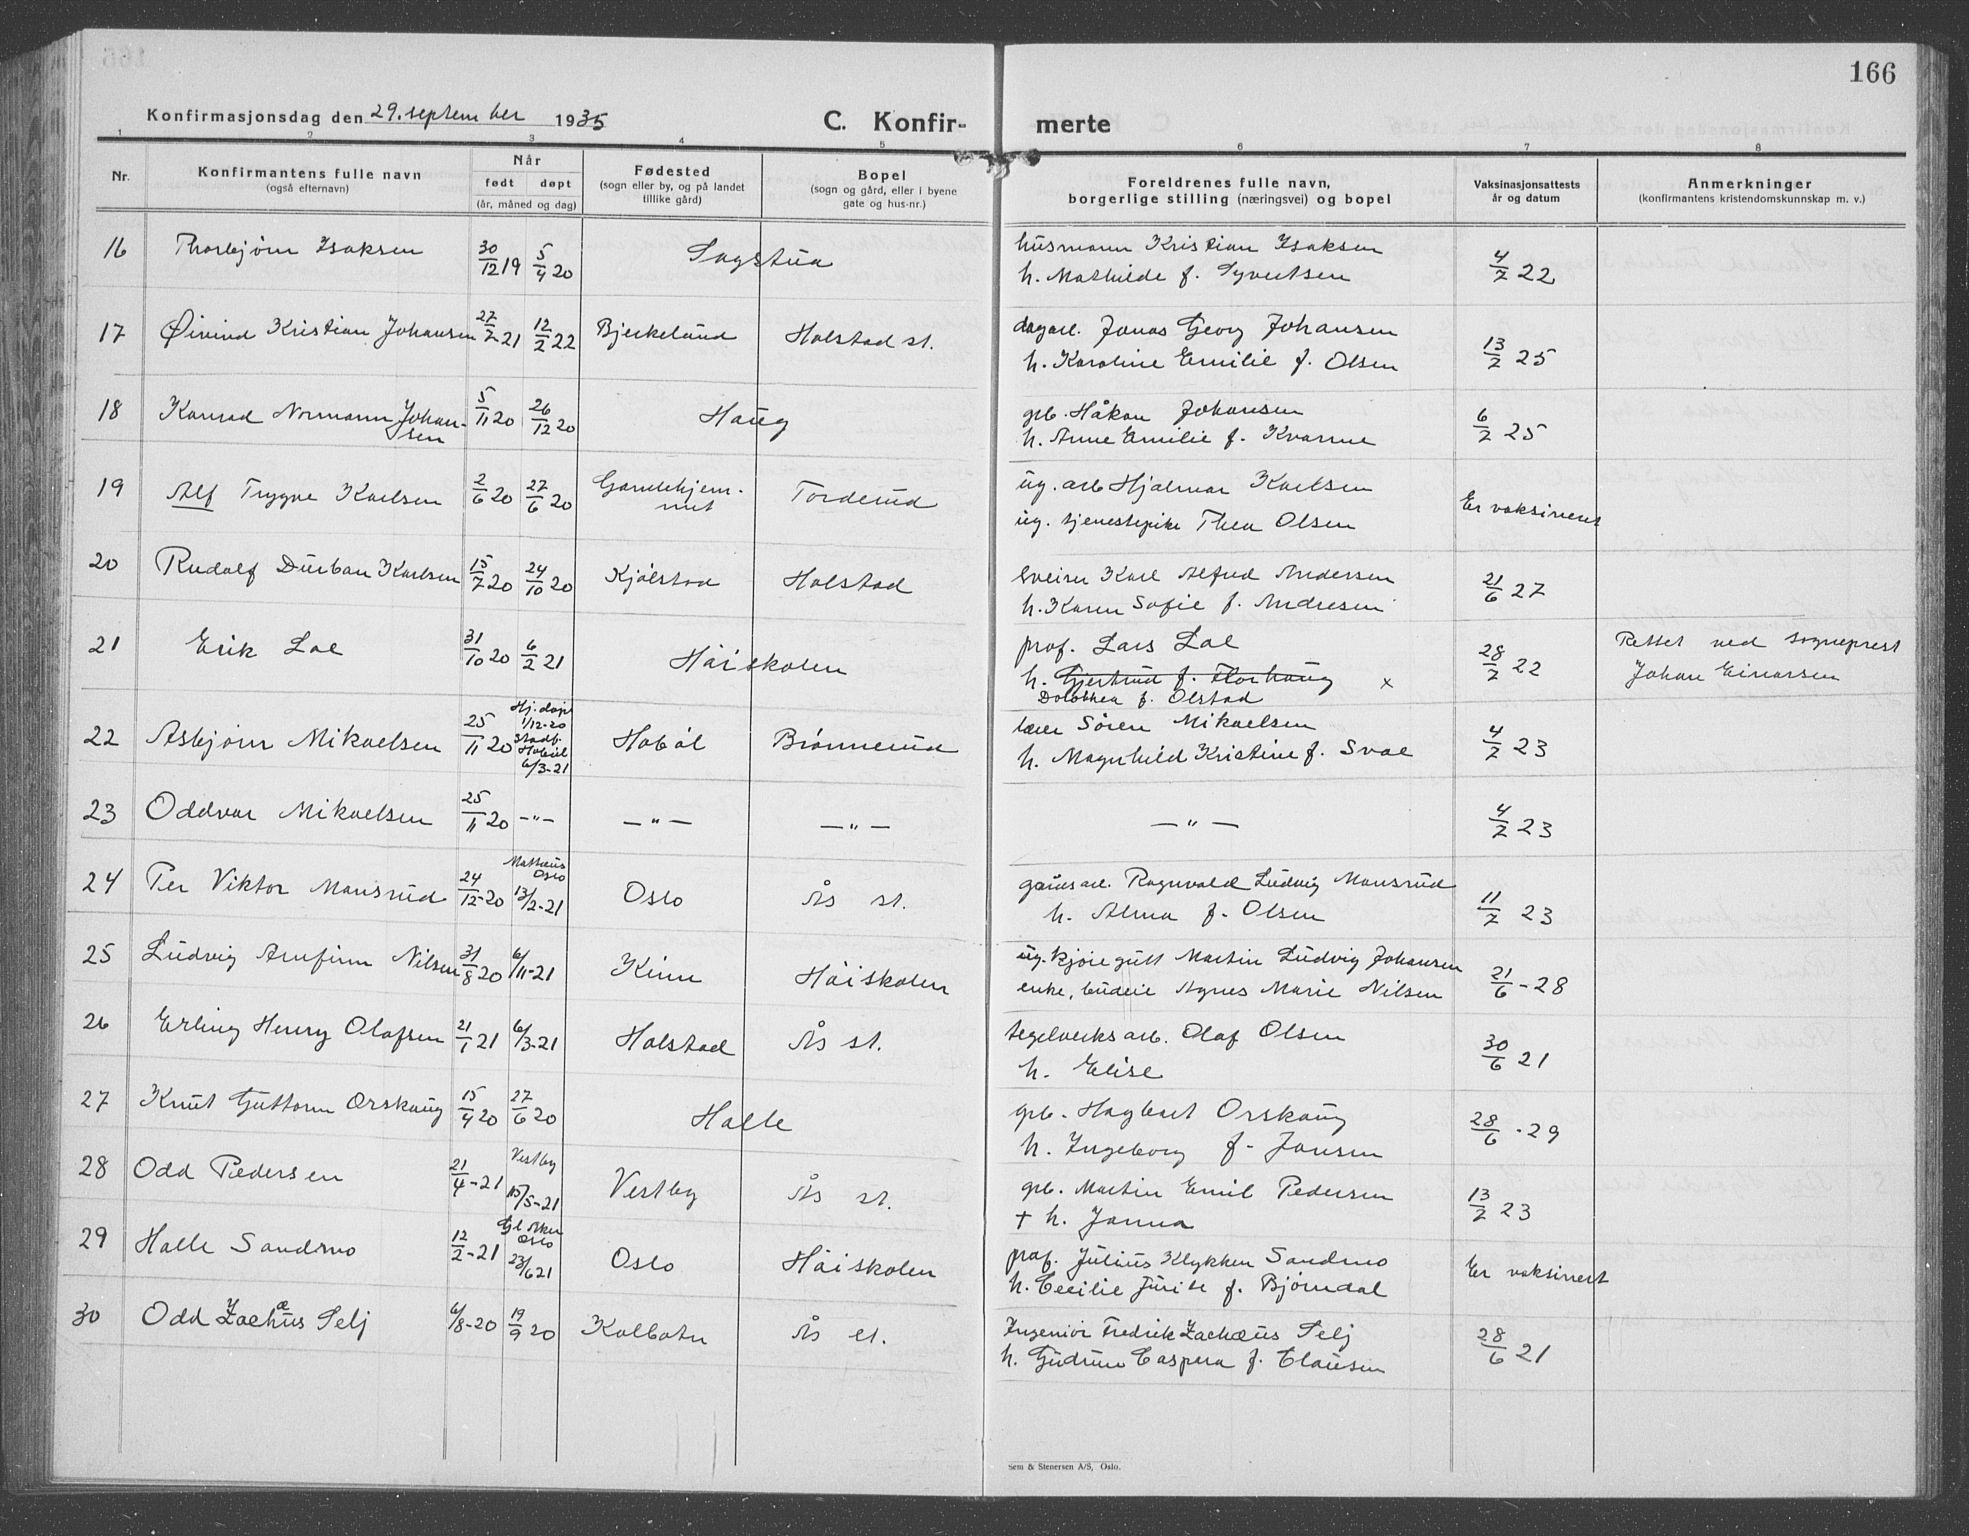 166
Konfirmasjonsdag den 29. september 1935
C. Konfir- merte
1 2 3 4 5 6 7 8
Nr.
Konfirmantens fulle navn
(også efternavn)
Når
født døpt
(år, måned og dag)
Fødested
(sogn eller by, og på landet
tillike gård)
Bopel
(sogn og gård, eller i byene
gate og hus-nr.)
Foreldrenes fulle navn,
borgerlige stilling (næringsvei) og bopel
Vaksinasjonsattests
år og datum
Anmerkninger
(konfirmantens kristendomskunnskap m. v.)
16 Thorbjørn Isaksen 30/12 19 5/4 20 Sagstua
husmann Kristian Isaksen
h. Mathilde f. Syvertsen 4/7 22
17 Øivind Kristian Johansen 27/7 21 12/2 22 Bjerkelund Holstad st.
dagarb. Jonas Georg Johansen
h. Karoline Emilie f. Olsen 13/7 25
18 Konrad Normann Johan-
sen 5/11 20 26/12 20 Haug
grb. Håkon Johansen
h. Anne Emilie f. Kvarme 6/7 25
19 Alf Trygve Karlsen 2/6 20 27/6 20 Gamlehjem-
met Torderud
ug. arb Hjalmar Karlsen
ug. tjenestepike Thea Olsen Er vaksinert
20 Rudolf Durban Karlsen 15/7 20 24/10 20 Kjølstad Holstad
sveiser Karl Alfred Andersen
h. Karen Sofie f. Andresen 21/6 27
21 Erik Loe 31/10 20 6/2 21 Høiskolen
prof. Lars Loe
h. Gjertrud f. Florhaug x
Dorothea f. Olstad 28/7 22
Rettet ved sogneprest
Johan Einarsen
22 Asbjørn Mikaelsen 25/11 20
Hj.døpt
1/12-20
Stadf.
Hobøl
6/3-21
Hobøl Brønnerud
lærer Søren Mikaelsen
h. Magnhild Kristine f. Svae 4/7 23
23 Oddvar Mikaelsen 25/11 20 -"- -"- -"- -"- 4/7 23
24 Per Viktor Mansrud 24/12-20
Mattæus
Oslo
13/2-21 Oslo Ås st.
Ragnvald Ludvig Mansrud
h. Alma f. Olsen 11/7 23
25 Ludvig Arnfinn Nilsen 31/8 20 6/11-21 Kinn Høiskolen
ug. kjøregutt Martin Ludvig Johansen
enke, budeie Agnes Marie Nilsen 21/6-28
26 Erling Henry Olafsen 21/1 21 6/3-21 Holstad Ås st.
teglverksarb. Olaf Olsen
h. Elise 30/6 21
27 Knut Guttorm Orskaug 15/4 20 27/6 20 Holle
grb. Hagbart Orskaug
h. Ingeborg f. Jonsen 28/6-29
28 Odd Pedersen 21/4-21
Vestby
15/5-21 Vestby Ås st.
grb. Martin Emil Pedersen
+ h. Janna 13/7 23
29 Halle Sandmo 12/2-21
Gl Aker
Oslo
23/6 21 Oslo Høiskolen
prof. Julius Klykken Sandmo
h. Cecilie Jurite f. Bjørndal Er vaksinert
30 Odd Zachæus Selj 6/8-20 19/9 20 Kolbotn Ås st.
Ingeniør Fredrik Zachæus Selj
h. Gudrun Caspera f. Clausen 28/6 21
Sem & Stenersen A/S, Oslo.